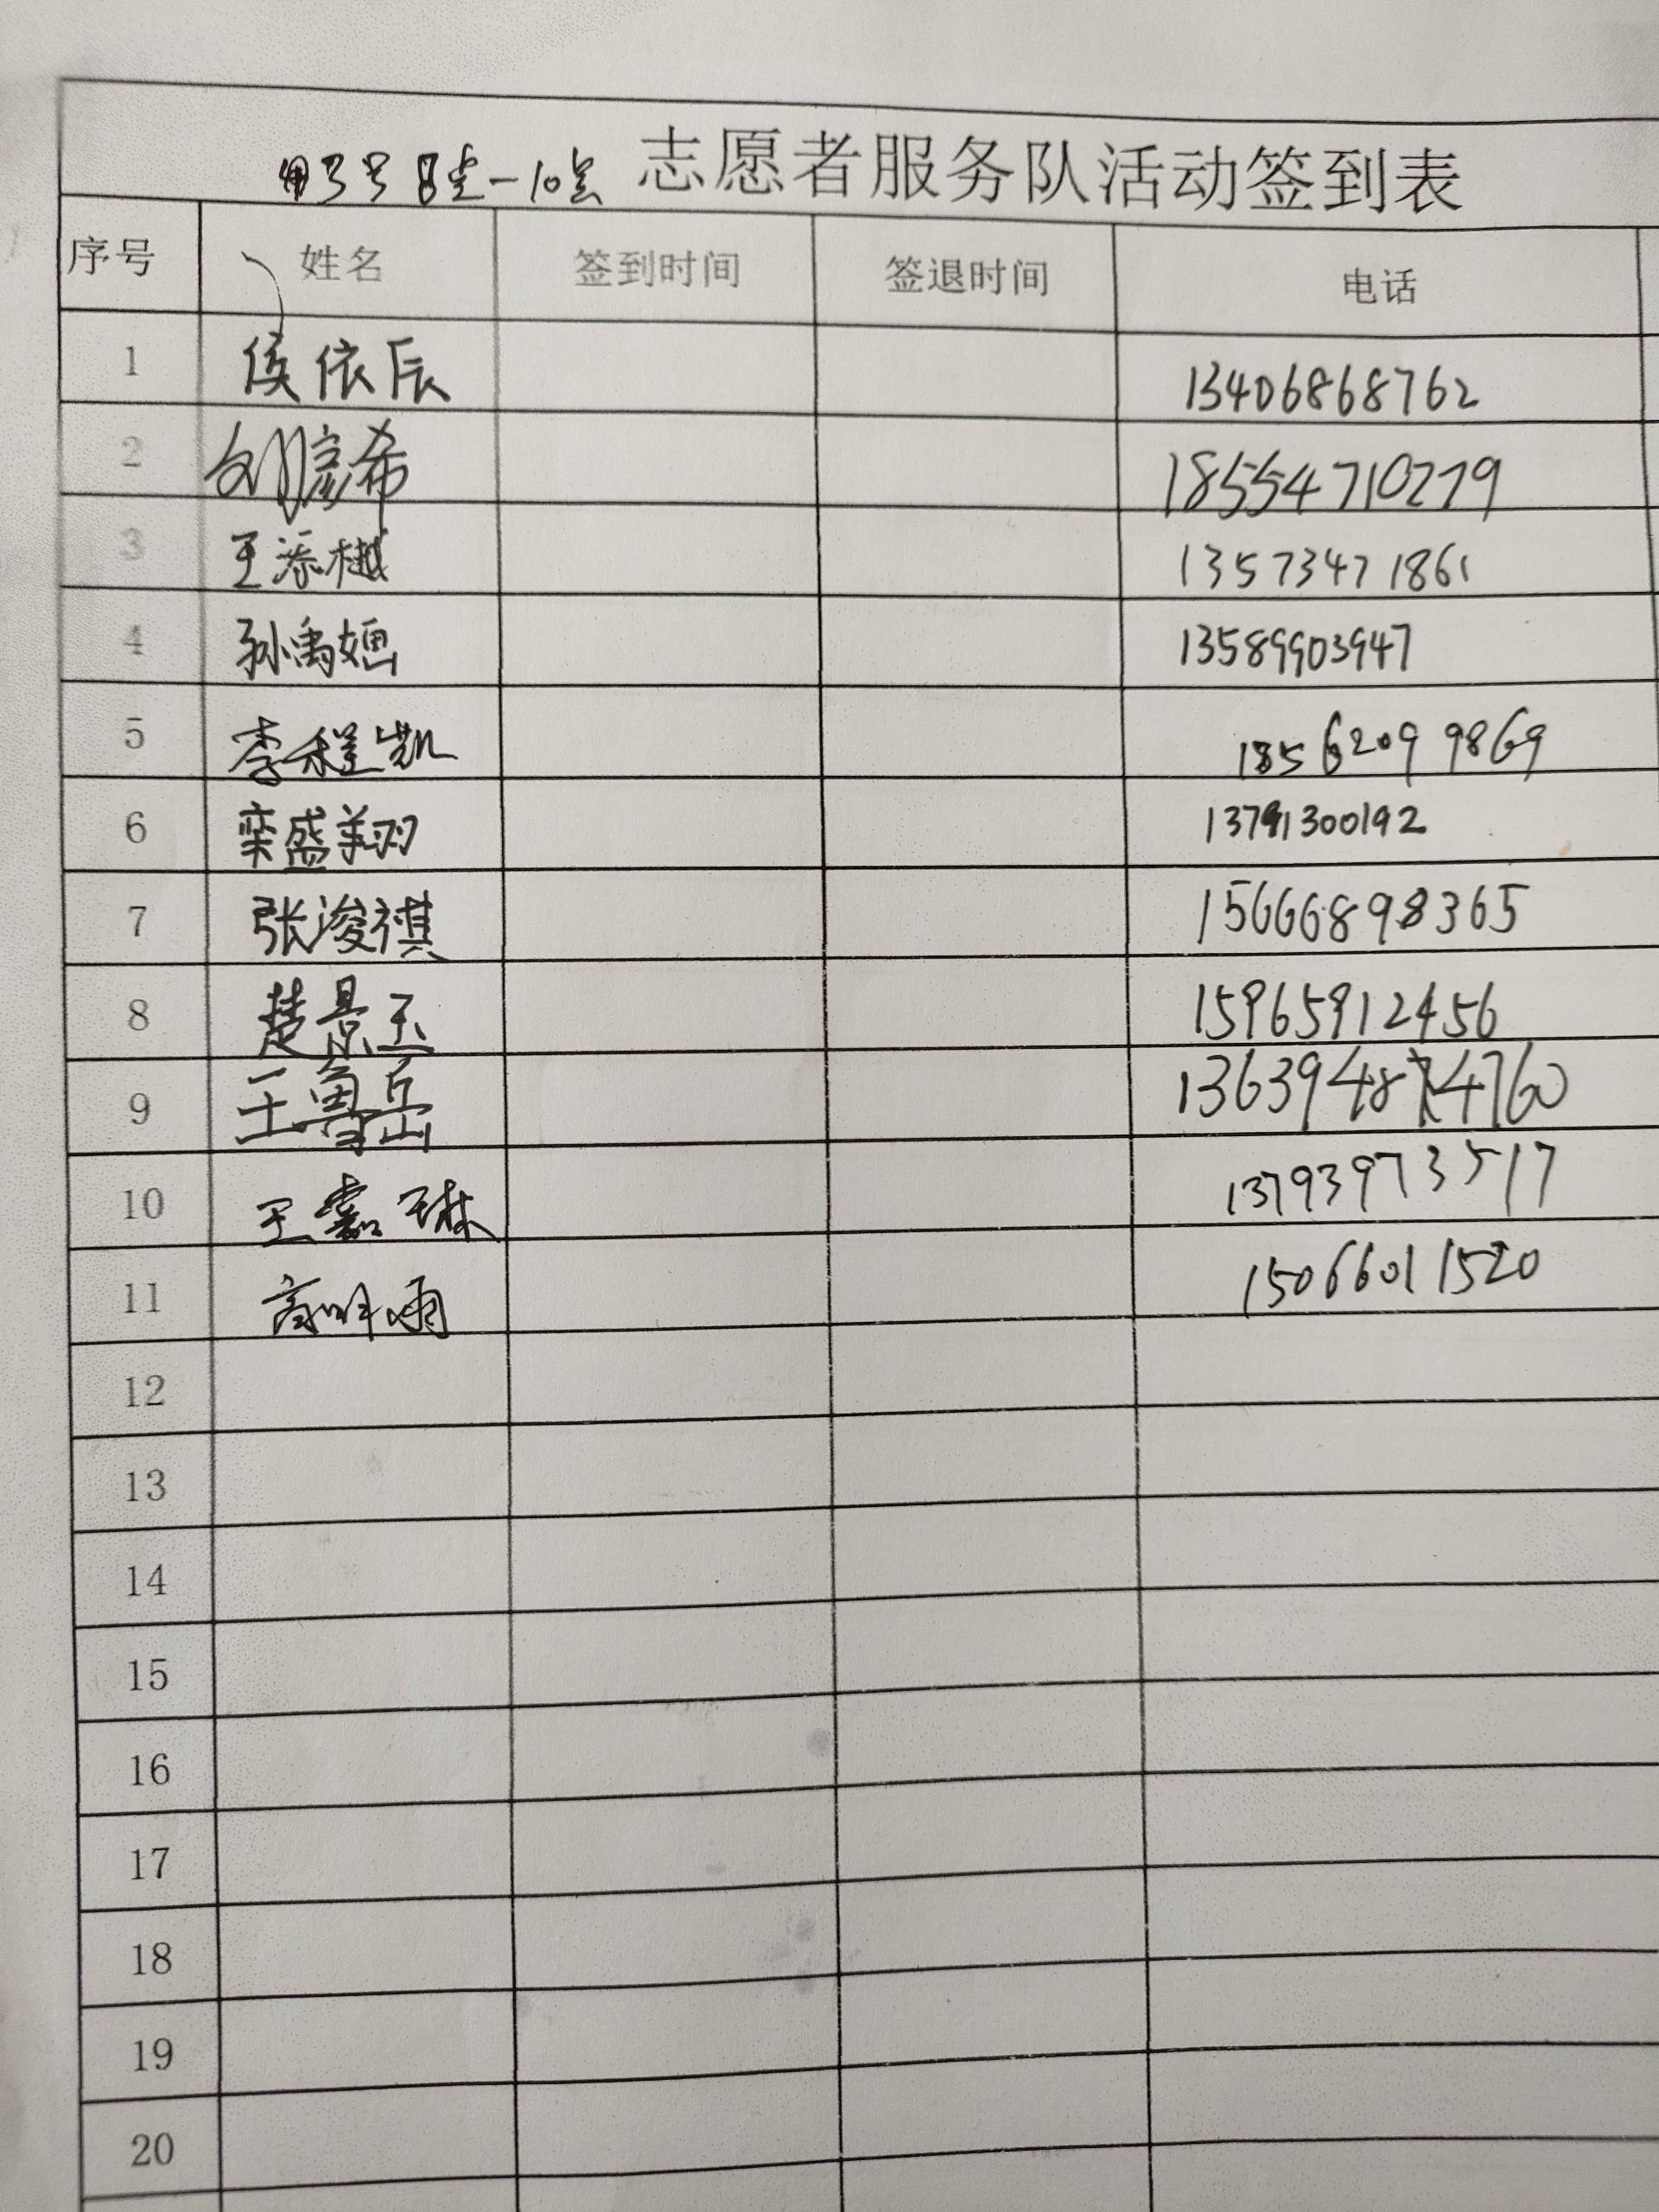 3号8点-10点 志愿者服务队活动签到表
序号 姓名 签到时间 签退时间 电话
1 侯依辰 13406868762
2 刘彦希 18554710279
3 王添樾 13573471861
4 孙禹 13589903947
5 李程凯 18562099869
6 栾盛翔 13791300192
7 张浚祺 15666898365
8 楚景玉 15965912456
9 王鲁岳 13639484760
10 王嘉琳 13793973517
11 高雨 15066011520
12
13
14
15
16
17
18
19
20